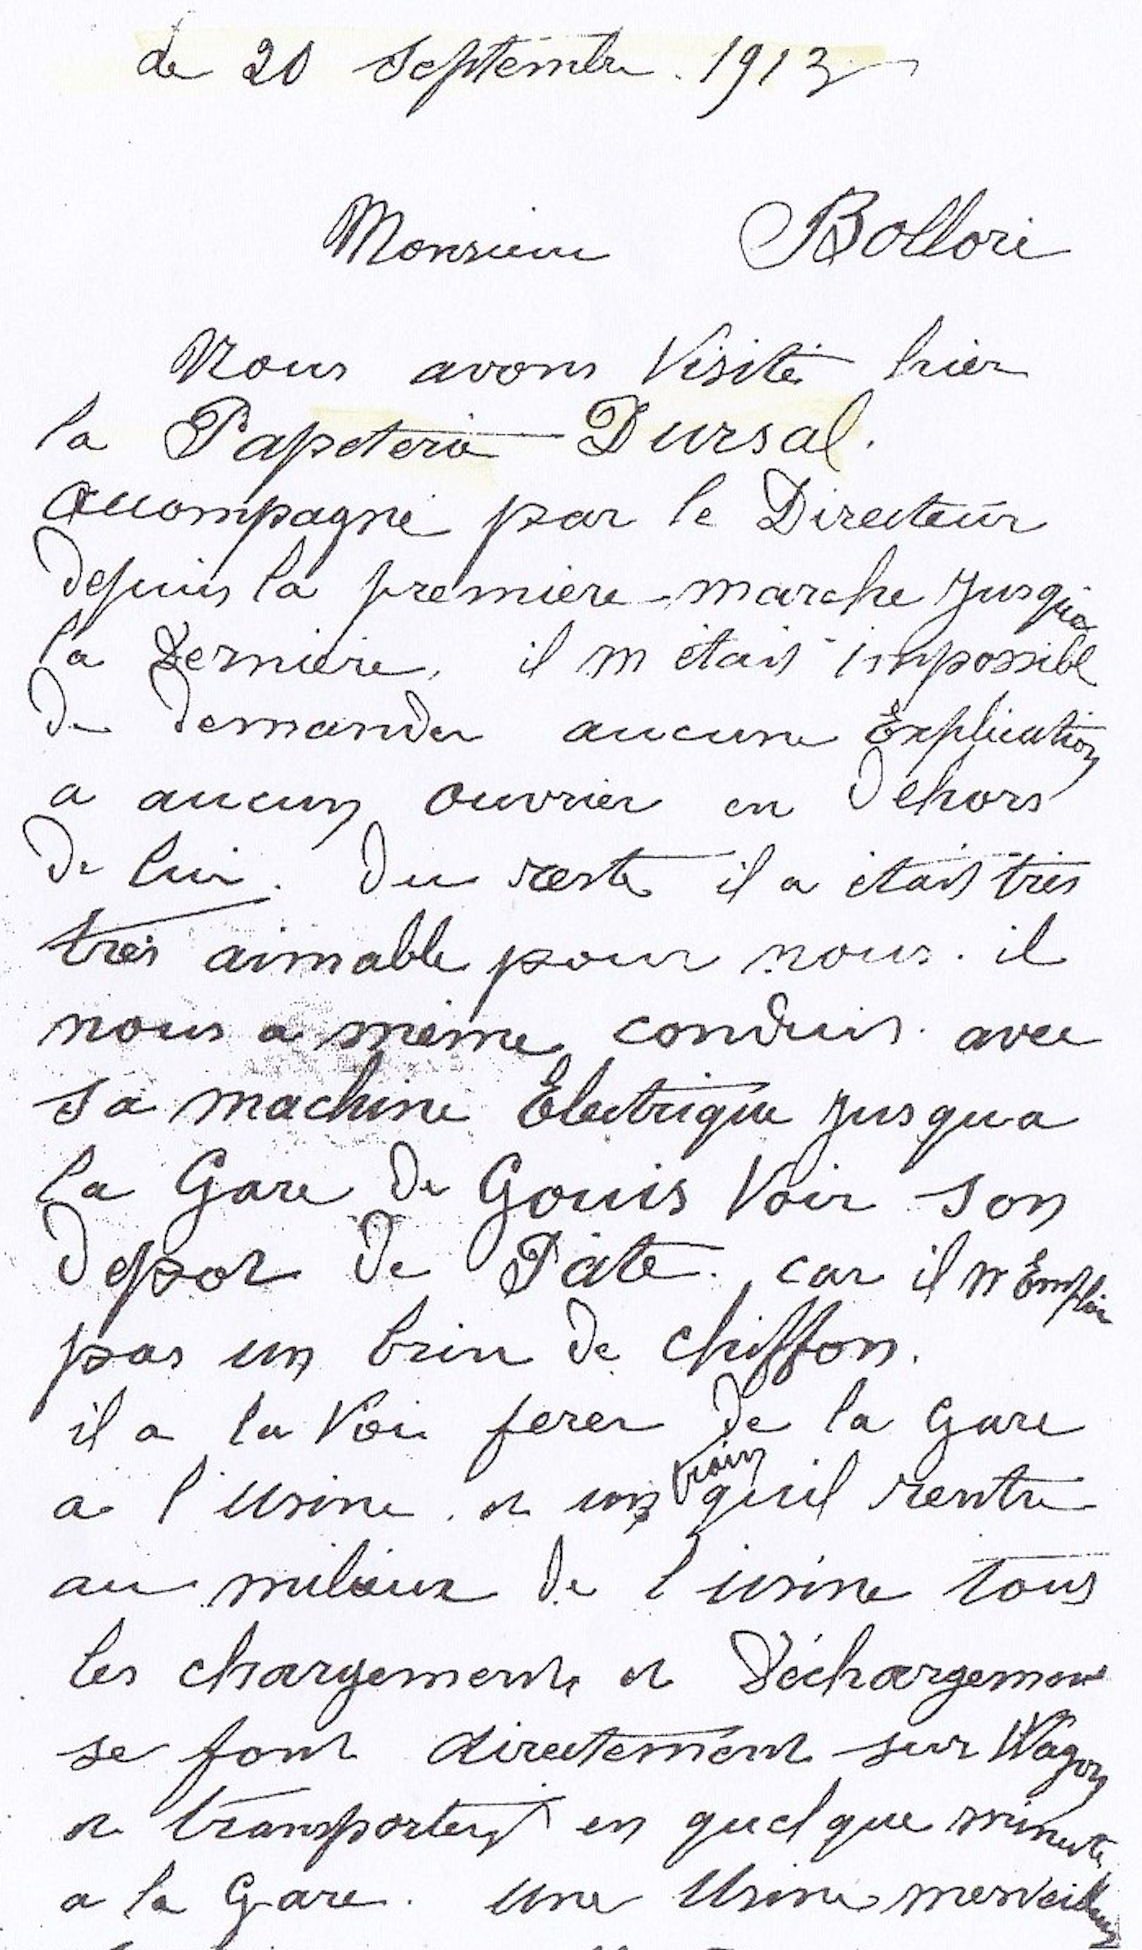 de 20 septembre 1913
Monsieur Bolloré
Nous avons Visité hier
la Papeterie Dursal.
accompagné par le Directeur
depuis la première marche Jusqua
la dernière, il m était impossible
de demander aucune Explication
a aucun ouvrier en dehors
de lui. du reste il a étais très
très aimable pour nous. il
nous a même conduis avec
sa machine Electrique Jusqua
la Gare de Gouis Voir son
depot de Pâte. car il n Emploi
pas un brin de chiffon.
il a la Voie ferer de la Gare
a l'usine. et un train quil rentre
au milieux de l'usine tous
les chargements et déchargement
se font directement sur Wagon
et transporter en quelque minute
a la Gare. une Usine merveilleux